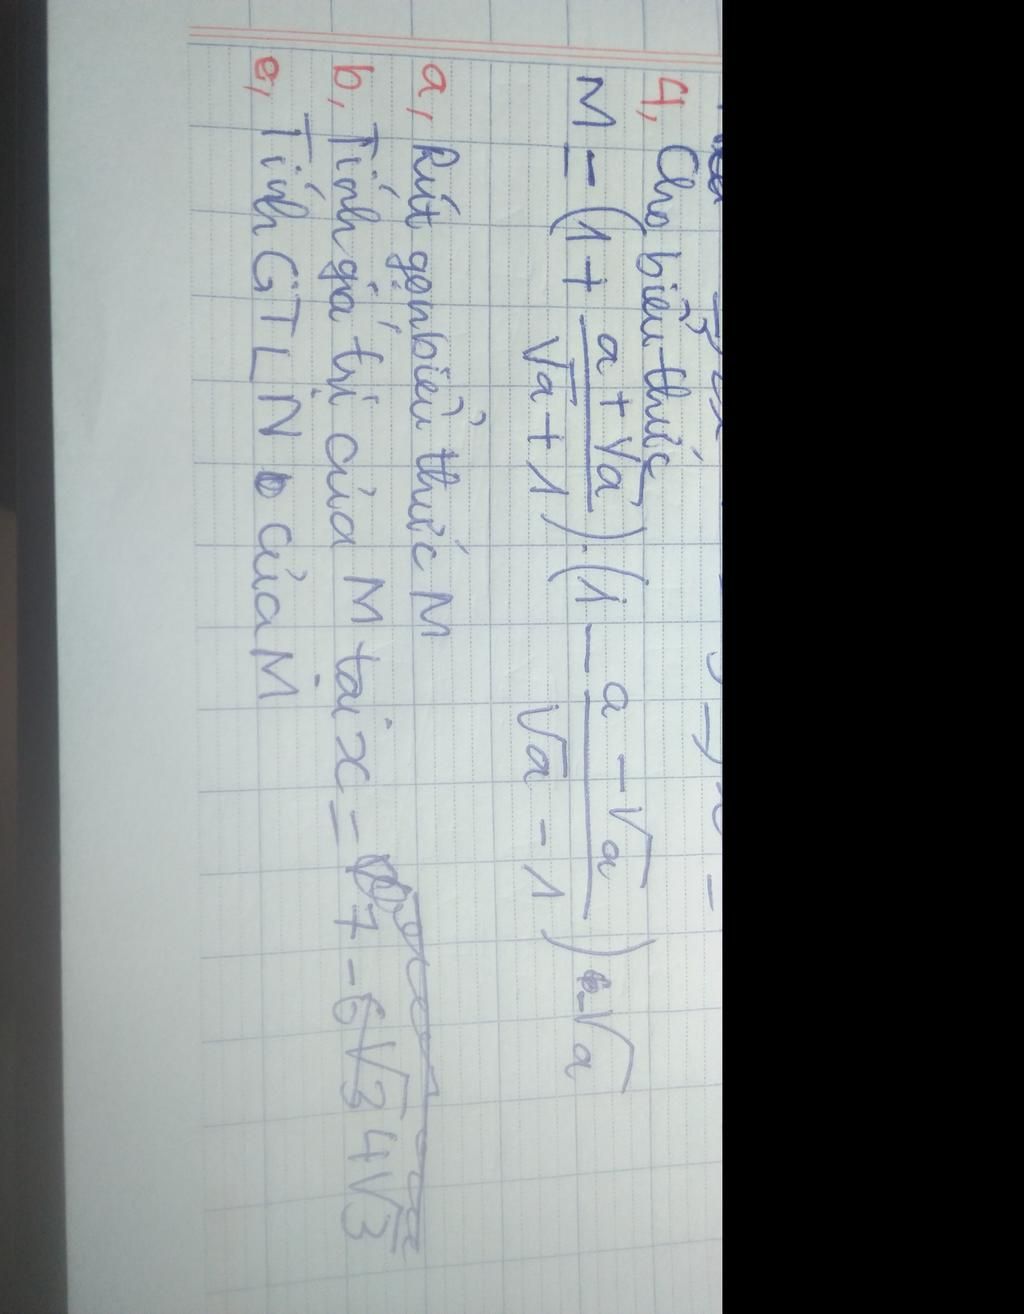 4, Cho biểu thức
M = (1 + \frac{a + √a}{√a + 1}) . (1 - \frac{a - √a}{√a - 1}) - √a
a, Rút gọn biểu thức M
b, Tính gá trị của M tại x = 7 - 4√3
c, Tính GTLN của M